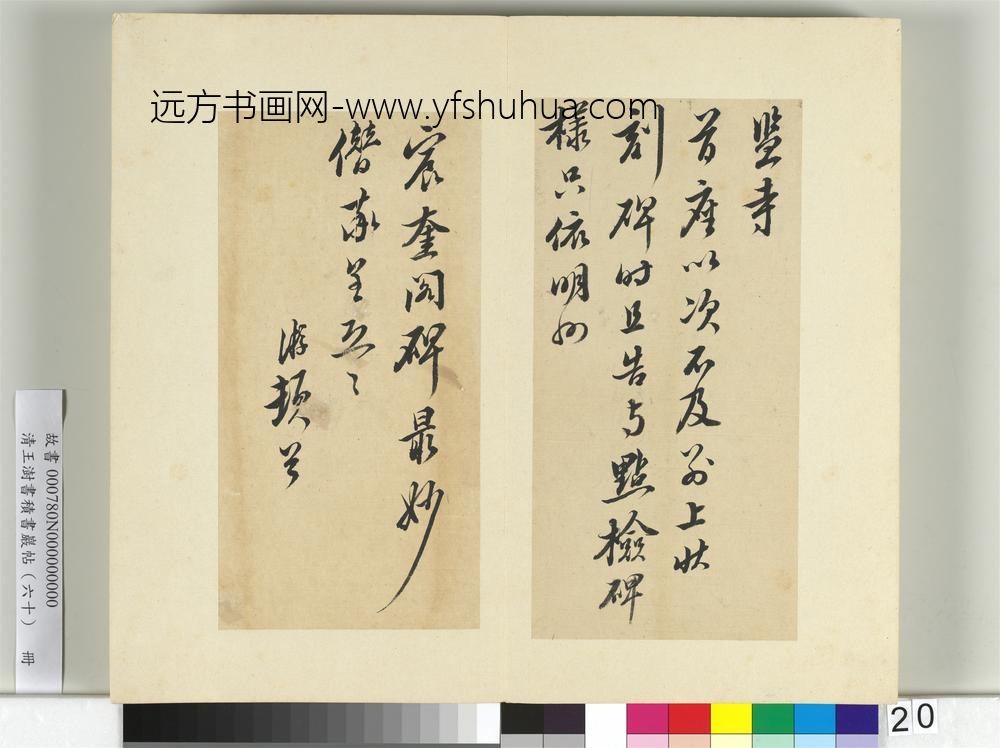 远方书画网-www.yfshuhua.com
监寺
首座以次不及别上状
刻碑时且告与點檢碑
様只依明州
宸奎阁碑最妙
僭易呈恐〻
游頓首
故書 000780N000000000
清王澍書積書巖帖（六十） 冊
20